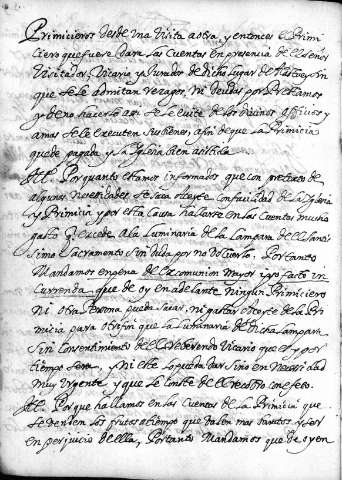 Primicieros desde una Visita a otra y entonces el Primi
ciero que fuere dara las Cuentas en presencia de el señor
Visitador, Vicario y Jurados de dicho Lugar de sin
que se le admitan rezagos, ni deudas por Reclamos
y de no hacerlo asi se le evite de los divinos officios y
a mas se le executen sus bienes, afin de que la Primicia
quede pagada y la Iglesia bien asistida
Att. Por quanto estamos informados que con pretexto de
algunas necesidades se saca Aceyte con facilidad de la Iglesia
y Primicia y por esta causa hallarse en las Cuentas mucho
gasto q. excede a la Luminaria de la Lampara de el Santi
simo Sacramento sin duda por no Por tanto
Mandamos en pena de Excomunion Mayor ipso facto in
currenda que de oy en adelante ningun Primiciero
ni otra Persona pueda sacar, ni gastar Aceyte de la Pri
micia para otro fin que la Luminaria de dicha Lampara
Sin Consentimiento de el Reverendo Vicario que es y por
tiempo sera, y ni este lo pueda dar sino en Necesidad
muy Urgente y que le Conste de el
Att. Porque hallamos en las Cuentas de la Primicia que
se venden los frutos a tiempo que valen mas baratos y ser
en perjuicio de ella, Por tanto Mandamos que de oy en